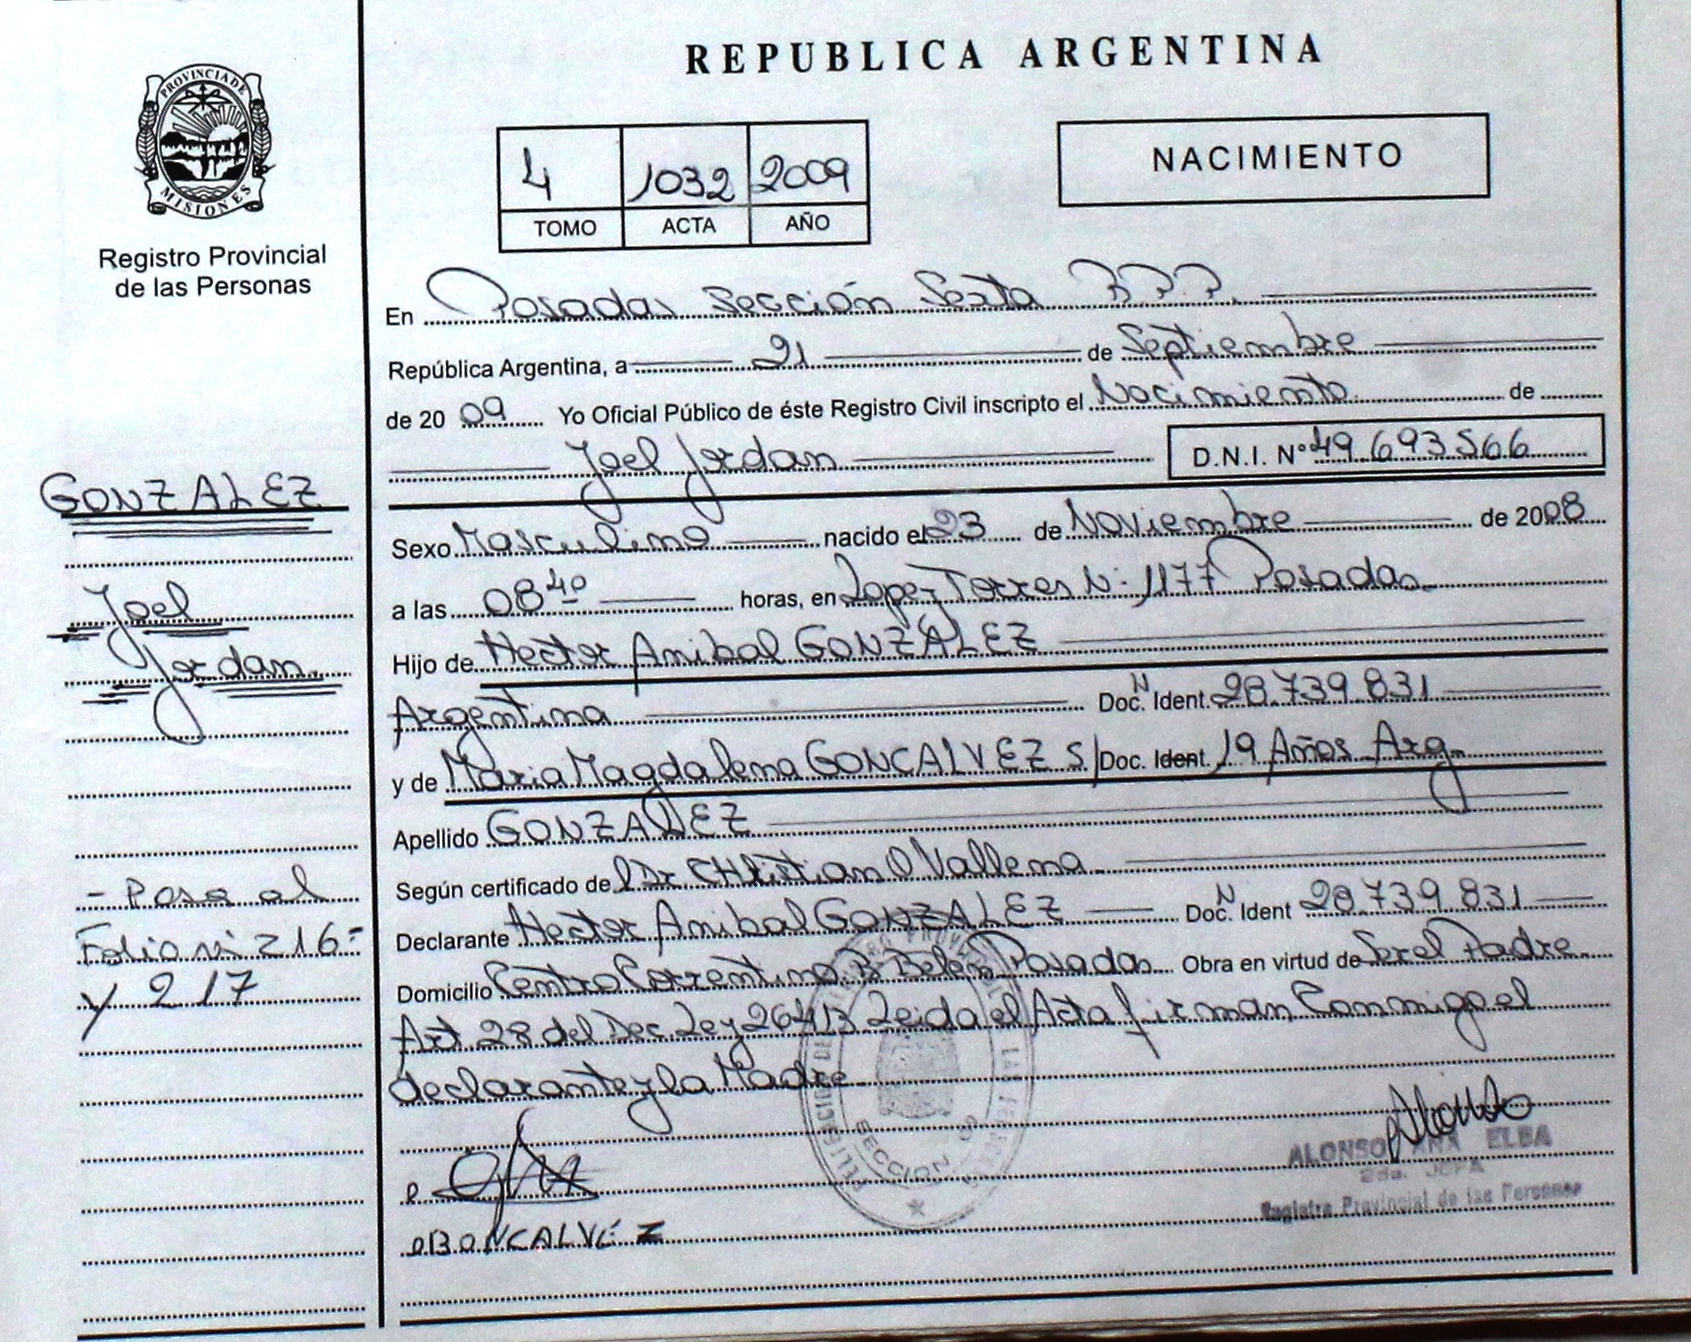 PROVINCIA DE
MISIONES
Registro Provincial
de las Personas
GONZALEZ
Joel
Jordan
- Pasa al
Folio Nº 216-
y 217
REPUBLICA ARGENTINA
4 1032 2009
TOMO ACTA AÑO
NACIMIENTO
En Posadas Sección Sexta R.P.P.
República Argentina, a 21 de Septiembre
de 2009 Yo Oficial Público de éste Registro Civil inscripto el Nacimiento de
Joel Jordan D.N.I. Nº 49.693.566
Sexo Masculino nacido el 23 de Noviembre de 2008
a las 08 40 horas, en Lopez Torres Nº 1177 Posadas
Hijo de Hector Anibal GONZALEZ
Argentina Doc. N Ident. 28.739.831
y de Maria Magdalena GONCALVEZ S/Doc. Ident. 19 Años Arg.
Apellido GONZALEZ
Según certificado de Dr. CHristian O Vallema
Declarante Hector Anibal GONZALEZ Doc. N Ident 28.739.831
Domicilio Centro Correntino Bº Belen Posadas Obra en virtud de Ser el Padre
Art 28 del Dec Ley 26413 Leida el Acta firman Conmigo el
declarante y la Madre
GONCALVEZ
ALONSO ANA ELBA
Registro Provincial de las Personas
SECCION